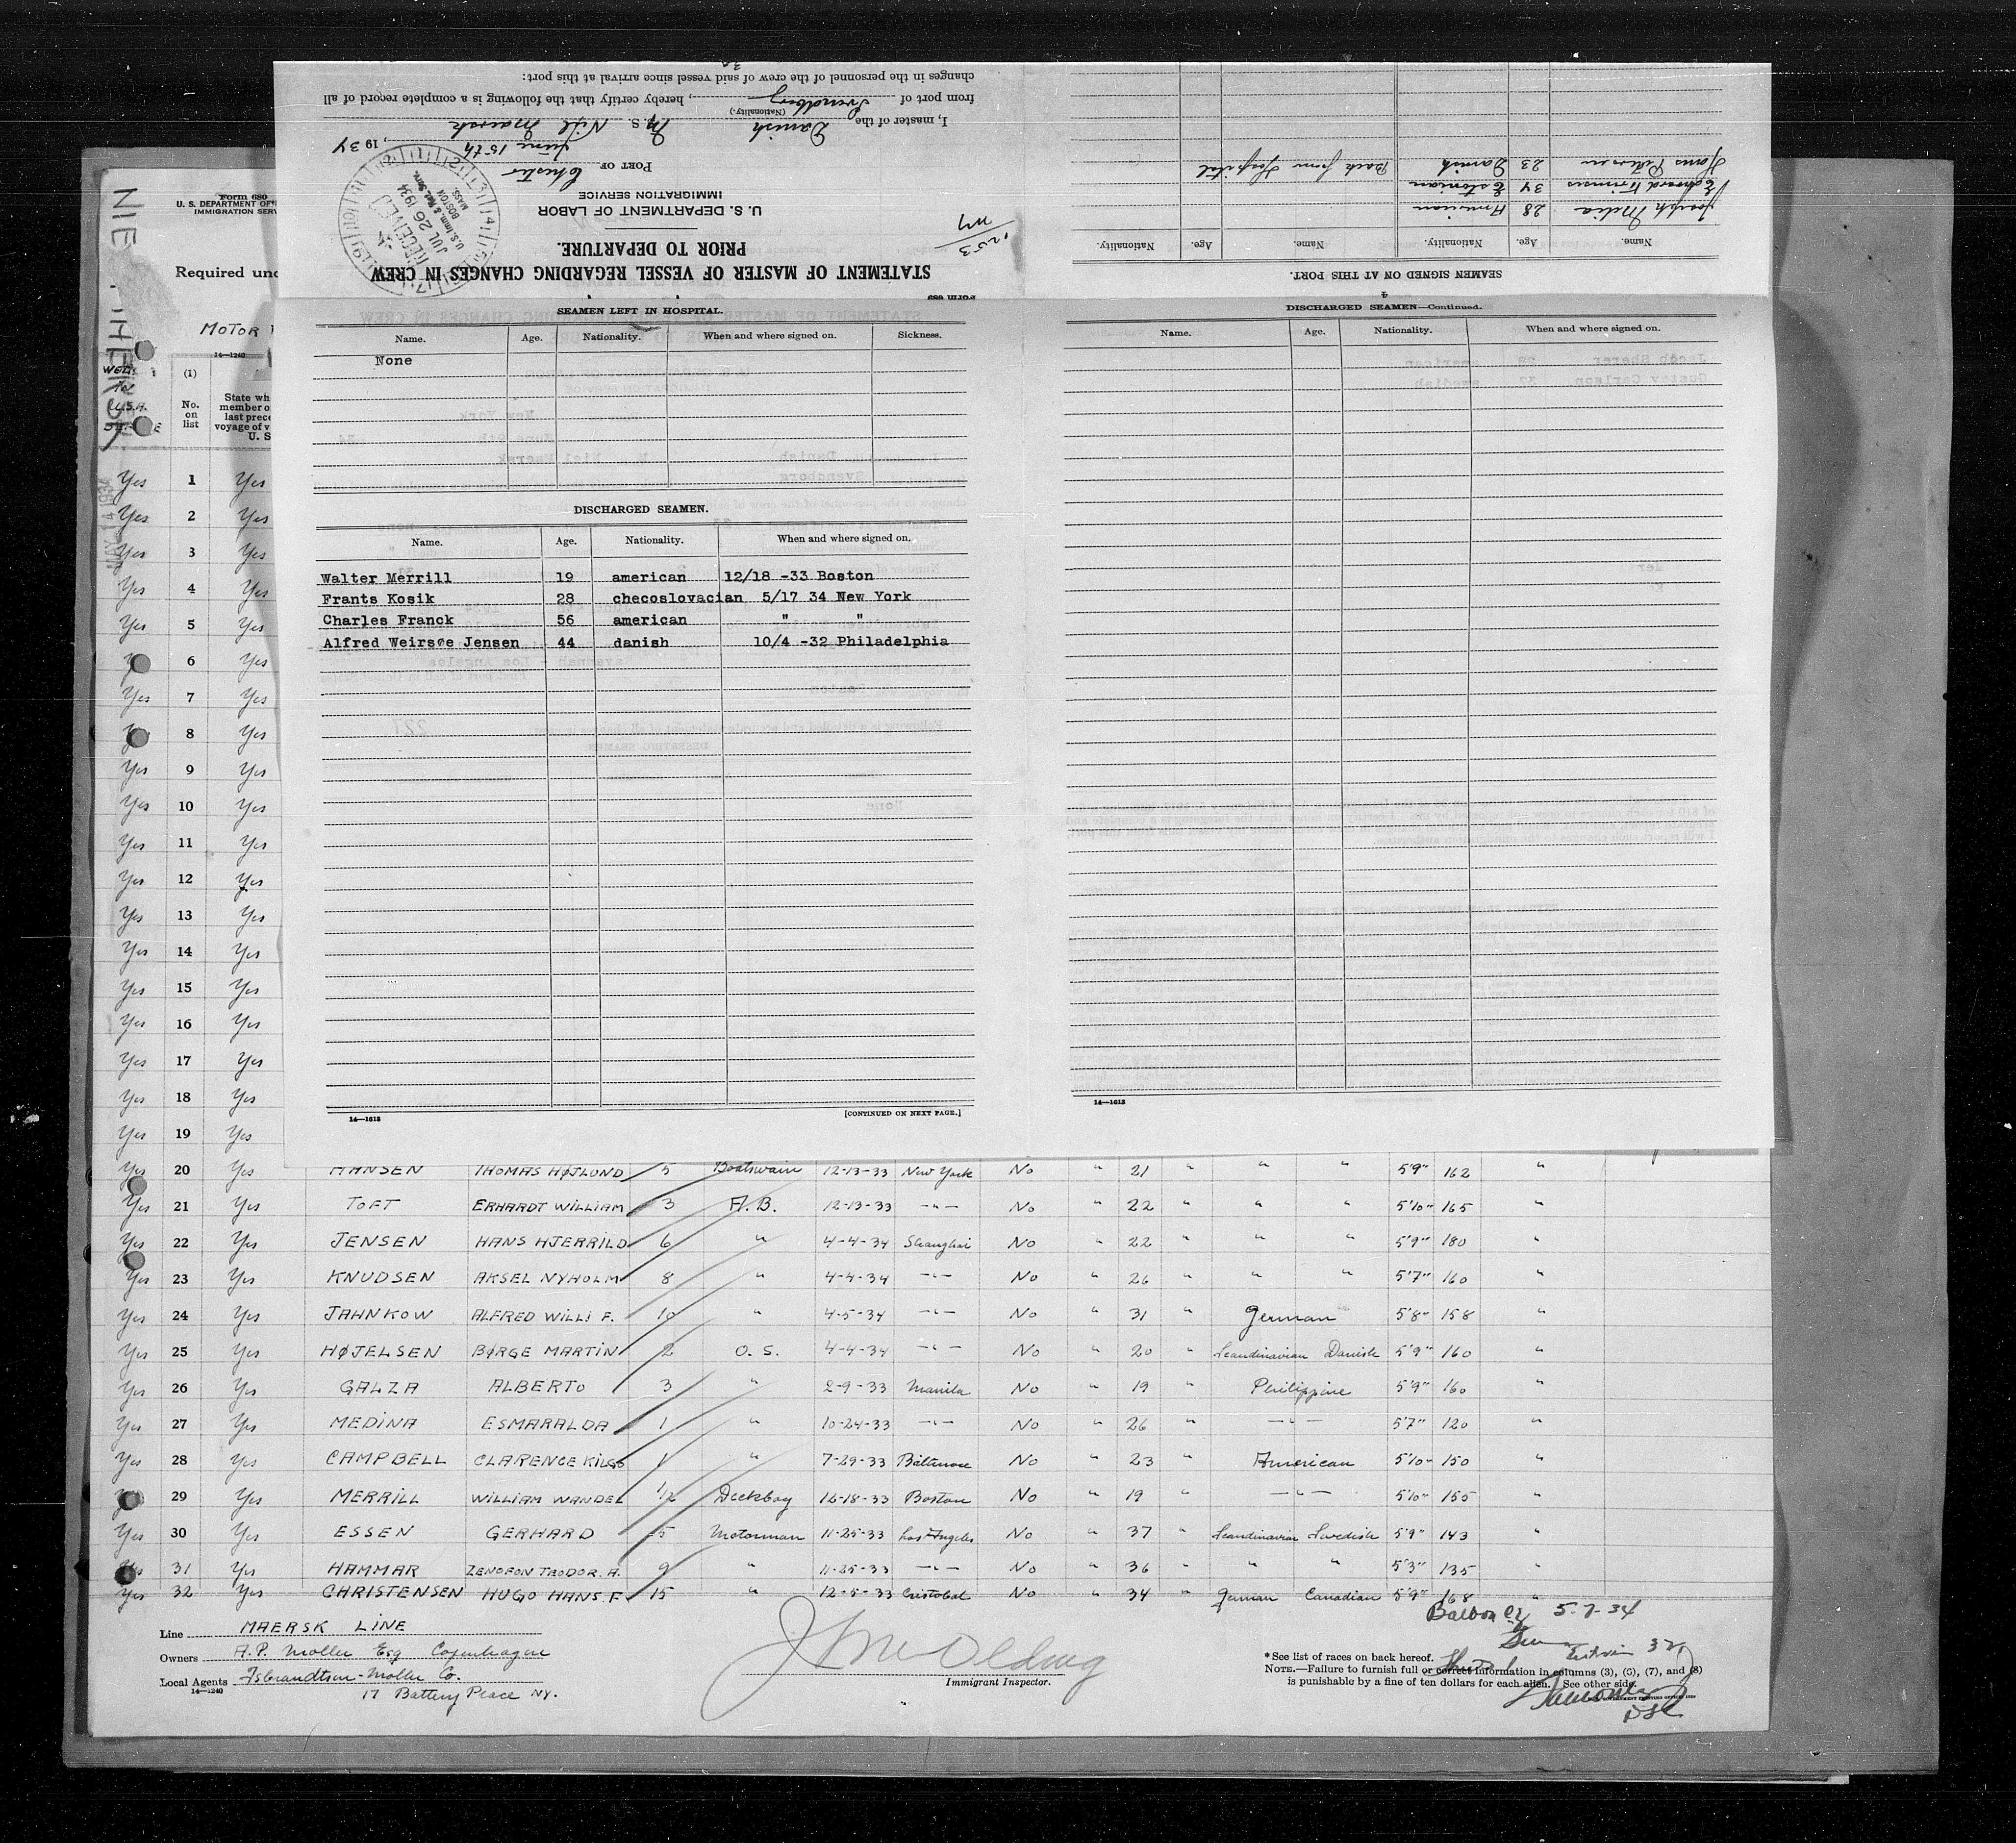 changes in the personnel of the crew of said vessel since arrival at this port:
from port of Svendborg, hereby certify that the following is a complete record of all
(Nationality.)
I, master of the Danish M. S. Niel Maersk
June 15th, 1934
PORT OF Chester
IMMIGRATION SERVICE
U. S. DEPARTMENT OF LABOR
PRIOR TO DEPARTURE.
STATEMENT OF MASTER OF VESSEL REGARDING CHANGES IN CREW
FORM 689
RECEIVED
JUL 26 1934
BOSTON
MASS.
1253
Hans Petersen 23 Danish Back from Hospital
34 Estonian
Joseph Melia 28 American
Name. Age. Nationality. Name. Age. Nationality.
SEAMEN SIGNED ON AT THIS PORT.
Form 680
U. S. DEPARTMENT OF
IMMIGRATION SERV
Required und
MOTOR
14—1240
MAY 14 1934
(1)
No. on list
State wh
member o
last prece
voyage of v
U. S
SEAMEN LEFT IN HOSPITAL.
Name. Age. Nationality. When and where signed on. Sickness.
None
DISCHARGED SEAMEN.
Name. Age. Nationality. When and where signed on.
Walter Merrill 19 american 12/18 -33 Boston
Frants Kosik 28 checoslovacian 5/17 34 New York
Charles Franck 56 american " "
Alfred Weirsøe Jensen 44 danish 10/4 -32 Philadelphia
14—1613
[CONTINUED ON NEXT PAGE.]
4
DISCHARGED SEAMEN—Continued.
Name. Age. Nationality. When and where signed on.
14—1613
Yes 1 Yes
Yes 2 Yes
Yes 3 Yes
Yes 4 Yes
Yes 5 Yes
Yes 6 Yes
Yes 7 Yes
Yes 8 Yes
Yes 9 Yes
Yes 10 Yes
Yes 11 Yes
Yes 12 Yes
Yes 13 Yes
Yes 14 Yes
Yes 15 Yes
Yes 16 Yes
Yes 17 Yes
Yes 18 Yes
Yes 19 Yes
Yes 20 Yes HANSEN THOMAS HØJLUND 5 Boatswain 12-13-33 New York No " 21 " " " 5'9" 162 "
Yes 21 Yes TOFT ERHARDT WILLIAM 3 A.B. 12-13-33 -"- No " 22 " " " 5'10" 165 "
Yes 22 Yes JENSEN HANS HJERRILD 6 " 4-4-34 Shanghai No " 22 " " " 5'9" 180 "
Yes 23 Yes KNUDSEN AKSEL NYHOLM 8 " 4-4-34 -"- No " 26 " " " 5'7" 160 "
Yes 24 Yes JAHNKOW ALFRED WILLI F. 10 " 4-5-34 -"- No " 31 " German 5'8" 158 "
Yes 25 Yes HØJELSEN BØRGE MARTIN 2 O. S. 4-4-34 -"- No " 20 " Scandinavian Danish 5'9" 160 "
Yes 26 Yes GALZA ALBERTO 3 " 2-9-33 Manila No " 19 " Philippine 5'9" 160 "
Yes 27 Yes MEDINA ESMARALDA 1 " 10-24-33 -"- No " 26 " -"- 5'7" 120 "
Yes 28 Yes CAMPBELL CLARENCE KILGO 1 " 7-29-33 Baltimore No " 23 " American 5'10" 150 "
Yes 29 Yes MERRILL WILLIAM WANDEL 1/2 Deckboy 12-18-33 Boston No " 19 " -"- 5'10" 155 "
Yes 30 Yes ESSEN GERHARD 5 Motorman 11-25-33 Los Angeles No " 37 " Scandinavian Swedish 5'9" 143 "
Yes 31 Yes HAMMAR ZENOFON TEODOR. A. 9 " 11-25-33 -"- No " 36 " " " 5'3" 135 "
Yes 32 Yes CHRISTENSEN HUGO HANS. F. 15 " 12-5-33 Cristobal No " 34 " German Canadian 5'9" 168 "
Line MAERSK LINE
Owners A.P. Moller Esq Copenhagen
Local Agents Isbrandtsen-Moller Co.
14—1240
17 Battery Place NY.
Immigrant Inspector.
Balboa CZ 5-7-34
* See list of races on back hereof.
NOTE.—Failure to furnish full or correct information in columns (3), (6), (7), and (8)
is punishable by a fine of ten dollars for each alien. See other side.